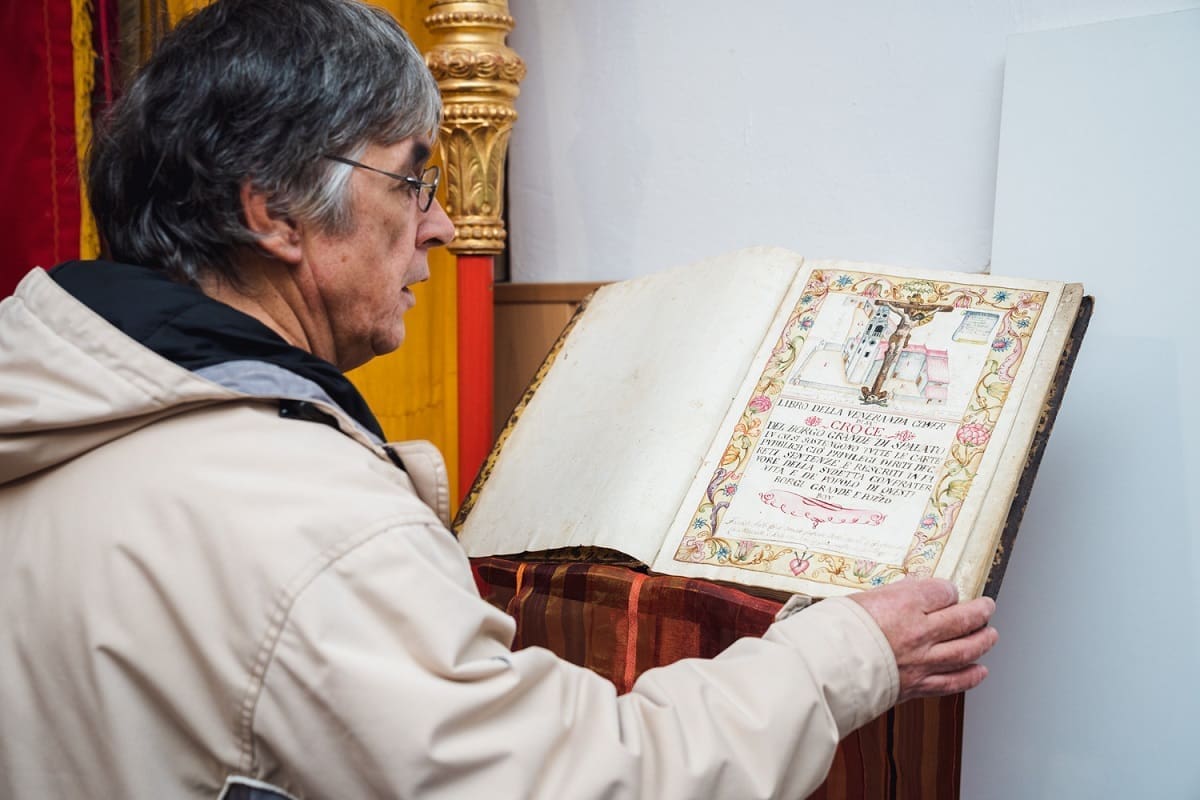 LIBRO DELLA VENERANDA CONFR
CROCE
DEL BORGO GRANDE DI SPALATO
IN CUI SI SOSTENGONO TUTTE LE CARTE
PUBBLICI CIO PRIVILEGI DIRITI DEC
RETI SENTENZE E RESCRITI IN FA
VORE DELLA SUDETTA CONFRATER
VITA E DE POPOLO DI QUESTI
BORGI GRANDE E POZZO
BON